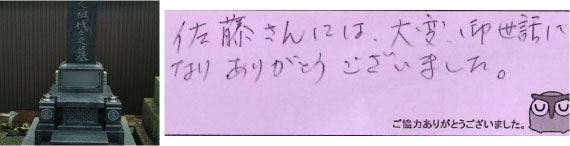 先祖代々之墓
佐藤さんには、大変、御世話に
なりありがとうございました。
ご協力ありがとうございました。